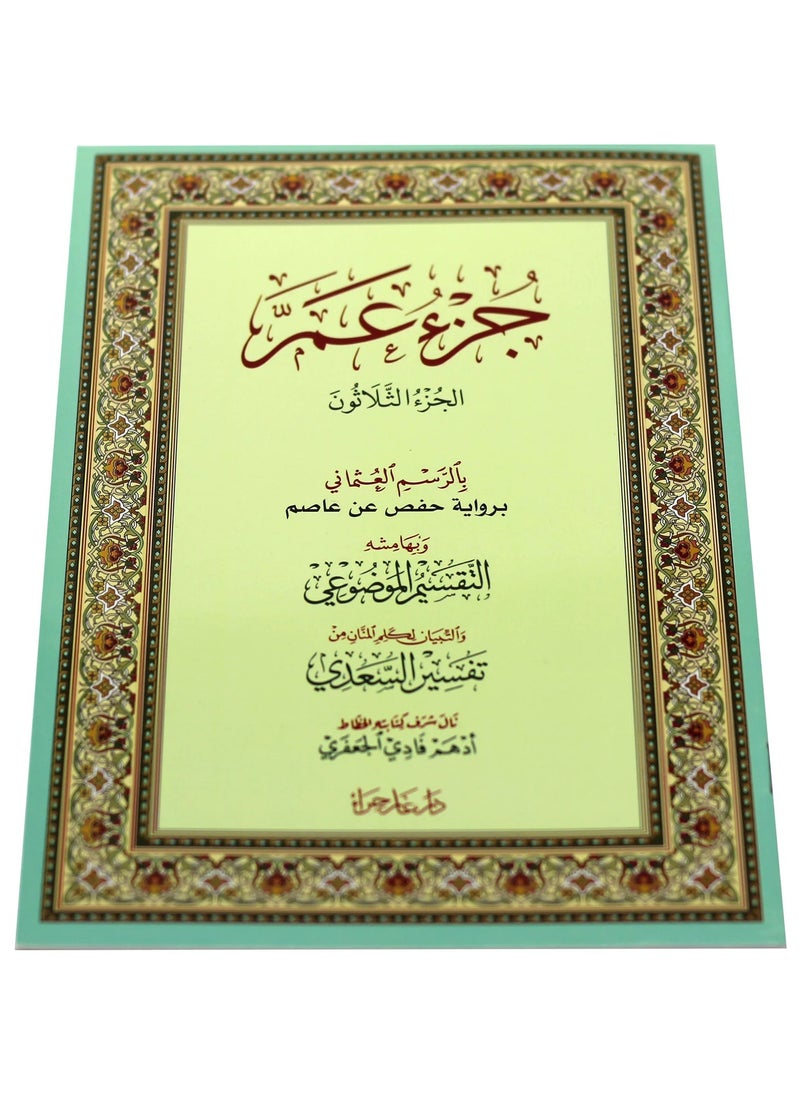 جُزْءُ عَمَّ
الجُزْءُ الثَّلَاثُونَ
بِالرَّسْمِ العُثْمَاني
برواية حفص عن عاصم
وَبِهَامِشِهِ
التَّقسِيْمُ الموضُوْعِي
وَالتِّبيَان لِكَلِمِ المَنَّانِ مِنْ
تَفْسِيْرِ السَّعْدِي
نَالَ شَرَفَ كِتَابَتِهِ الخَطَّاط
أدهَمْ فَادِي الجَعفَري
دَار غَار حِرَاء